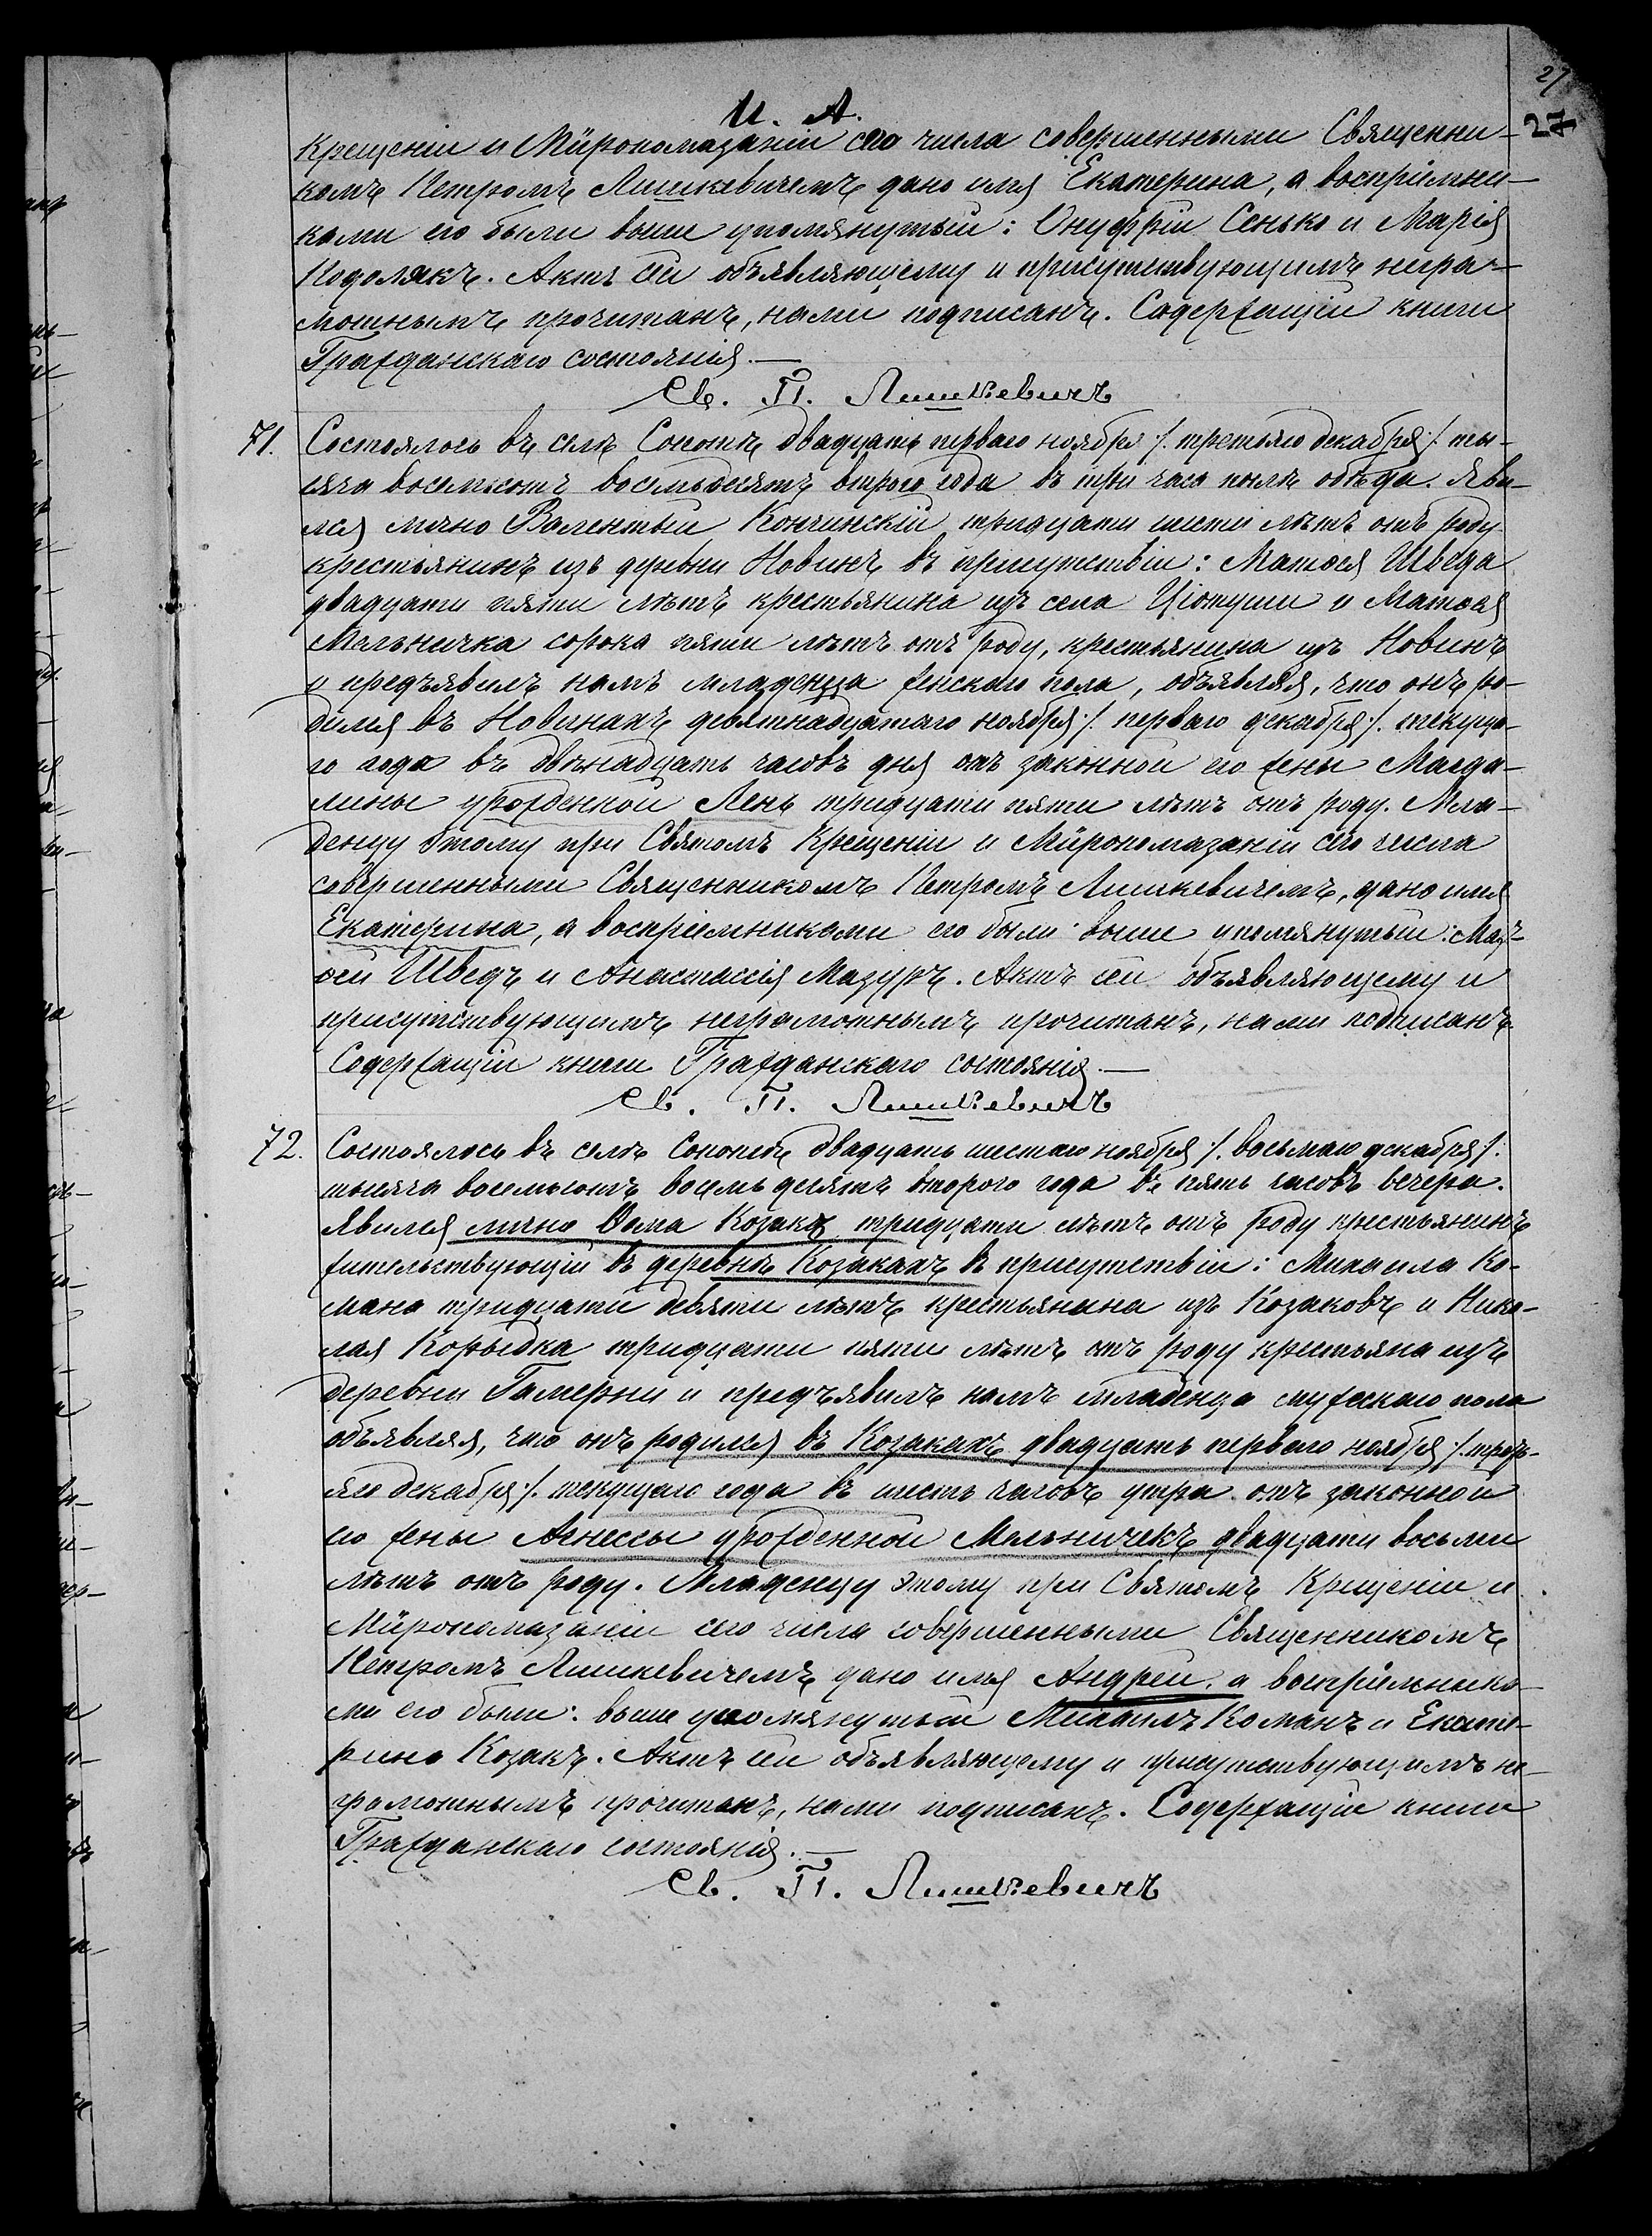 27
27
И. А.
Крещеніи и Мѵропомазаніи сего числа совершенными Священни-
комъ Петромъ Лишкевичемъ дано имя Екатерина, а воспріемни-
ками его были выше упомянутыи: Онуфрій Сенько и Марія
Подолякъ. Актъ сей объявляющему и присутствующимъ негра-
мотнымъ прочитанъ, нами подписанъ. Содержащій книги
Гражданскаго состоянія.—
Св. П. Лишкевичъ
71. Состоялось въ селѣ Сопотѣ двадцать перваго ноября /: третьяго декабря :/ ты-
сяча восемьсотъ восемьдесятъ втораго года въ три часа послѣ обѣда. Яви-
лся лично Валентый Кончинскій тридцати шести лѣтъ отъ роду
крестьянинъ изъ деревни Новинъ въ присутствіи: Матѳея Шведа
двадцати пяти лѣтъ крестьянина изъ села Цютуши и Матѳея
Мельничка сорока пяти лѣтъ отъ роду, крестьянина изъ Новинъ
и предъявилъ намъ младенца женскаго пола, объявляя, что онъ ро-
дился въ Новинахъ девятнадцатаго ноября /: перваго декабря :/ текуща-
го года въ двѣнадцать часовъ дня отъ законной его жены Магда-
лины урожденной Лень тридцати пяти лѣтъ отъ роду. Мла-
денцу этому при Святомъ Крещеніи и Мѵропомазаніи сего числа
совершенными Священникомъ Петромъ Лишкевичемъ, дано имя
Екатерина, а воспріемниками его были выше упомянутыи: Мат-
ѳей Шведъ и Анастассія Мазуръ. Актъ сей объявляющему и
присутствующимъ неграмотнымъ прочитанъ, нами подписанъ
Содержащій книги Гражданскаго состоянія.—
Св. П. Лишкевичъ
72. Состоялось въ селѣ Сопотѣ двадцать шестаго ноября /: восьмаго декабря :/
тысяча восемьсотъ восемьдесятъ второго года въ пять часовъ вечера.
Явился лично Ѳома Козакъ тридцати лѣтъ отъ роду крестьянинъ
жительствующій въ деревнѣ Козакахъ въ присутствіи: Михаила Ко-
мана тридцати девяти лѣтъ крестьянина изъ Козаковъ и Нико-
лая тридцати пяти лѣтъ отъ роду крестьяна изъ
деревни Гамерни и предъявилъ намъ младенца мужескаго пола
объявляя, что онъ родился въ Козакахъ двадцать перваго ноября /: треть-
яго декабря :/ текущаго года въ шесть часовъ утра отъ законной
его жены Агнессы урожденной Мельничекъ двадцати восьми
лѣтъ отъ роду. Младенцу этому при Святомъ Крещеніи и
Мѵропомазаніи сего числа совершенными Священникомъ
Петромъ Лишкевичемъ дано имя Андрей, а воспріемника-
ми его были: выше упомянутый Михаилъ Команъ и Екате-
рина Козакъ. Актъ сей объявляющему и присутствующимъ не-
грамотнымъ прочитанъ, нами подписанъ. Содержащій книги
Гражданскаго состоянія.—
Св. П. Лишкевичъ